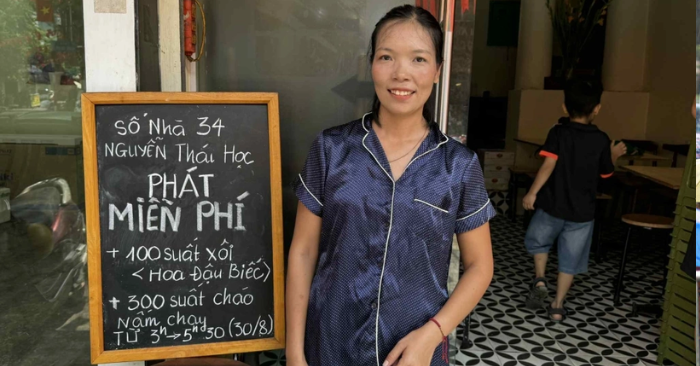 Số Nhà 34
NGUYỄN Thái Học
PHÁT
MIỄN PHÍ
+ 100 SUẤT XÔI
< Hoa Đậu Biếc>
+ 300 SUẤT CHÁO
NẤM CHAY
TỪ 3h → 5h 30 (30/8)